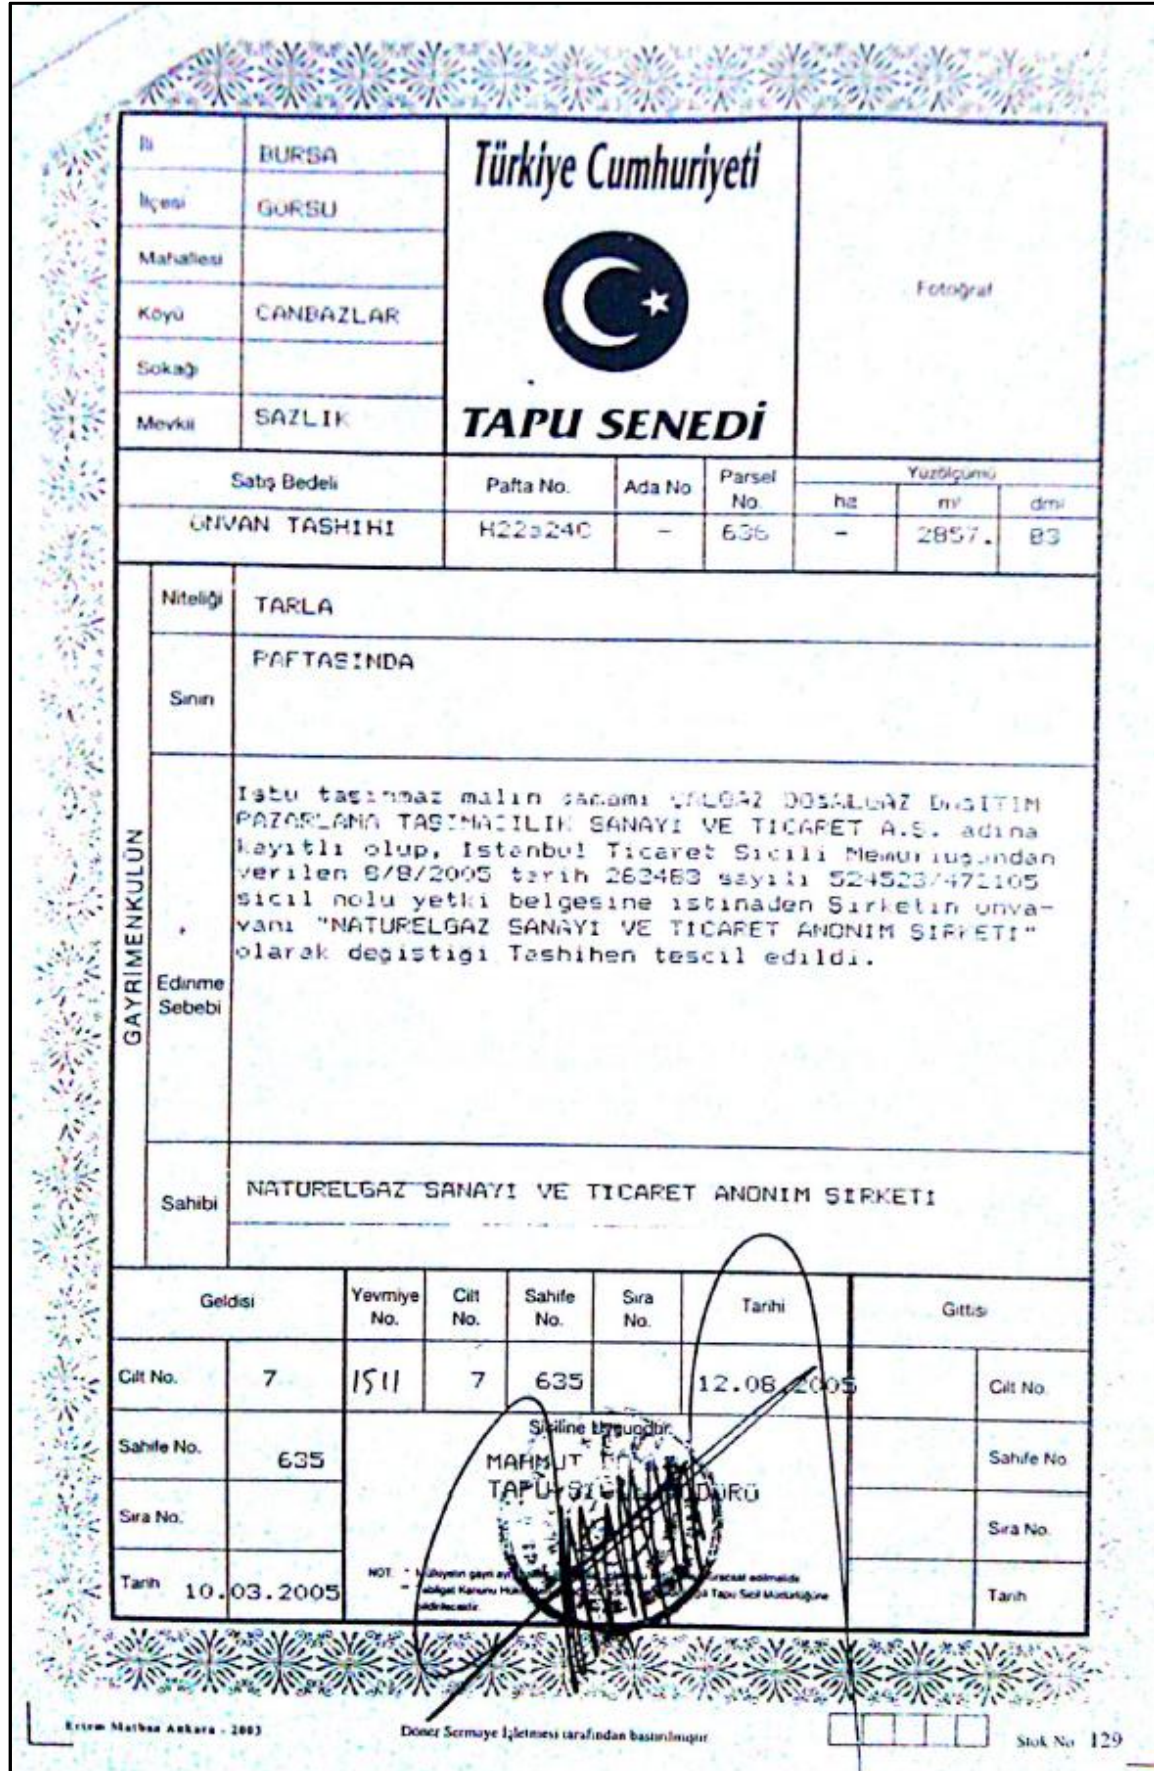 İli BURSA
İlçesi GURSU
Mahallesi
Köyü CANBAZLAR
Sokağı
Mevkii SAZLIK
Türkiye Cumhuriyeti
TAPU SENEDİ
Fotoğraf
Satış Bedeli Pafta No. Ada No Parsel No. Yüzölçümü
ha m² dm²
UNVAN TASHIHI - 636 - 2857. 83
GAYRİMENKULÜN
Niteliği TARLA
Sınırı PAFTASINDA
Edinme Sebebi
Isbu tasınmaz malın DAGITIM
PAZARLAMA TASIMACILIK SANAYI VE TICARET A.S. adına
kayıtlı olup, Istanbul Ticaret Sicili Memurlugundan
verilen 8/8/2005 tarih 262483 sayılı 524523/472105
sicil nolu yetki belgesine istinaden Sirketin unva-
vanı "NATURELGAZ SANAYI VE TICARET ANONIM SIRKETI"
olarak degistigi Tashihen tescil edildi.
Sahibi NATURELGAZ SANAYI VE TICARET ANONIM SIRKETI
Geldisi Yevmiye No. Cilt No. Sahife No. Sıra No. Tarihi Gittisi
Cilt No. 7 1511 7 635 12.08.2005 Cilt No.
Siciline Uygundur.
Sahife No. 635 MAHMUT Sahife No
TAPU
Sıra No. Sıra No.
NOT:
Tapu Sicil Müdürlüğüne
Tarih 10.03.2005 Tarih
Ertem Matbaa Ankara - 2003
Döner Sermaye İşletmesi tarafından bastırılmıştır
Stok No 129